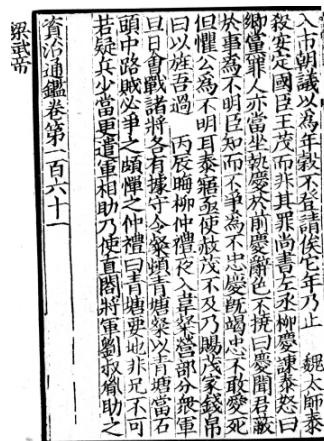 入市朝議以為年穀不登請俟它年乃止　魏太師泰
殺安定國臣王茂而非其罪尚書左丞柳慶諫泰怒曰
卿黨罪人亦當坐執慶於前慶辭色不撓曰慶聞君蔽
於事為不明臣知而不爭為不忠慶既竭忠不敢愛死
但懼公為不明耳泰寤亟使赦茂不及乃賜茂家錢帛
曰以旌吾過　丙辰晦柳仲禮夜入韋粲營部分衆軍
旦日會戰諸將各有據守令粲頓青塘粲以青塘當石
頭中路賊必爭之頗憚之仲禮曰青塘要地非兄不可
若疑兵少當更遣軍相助乃使直閤將軍劉叔胤助之
資治通鑑卷第一百六十一
梁武帝